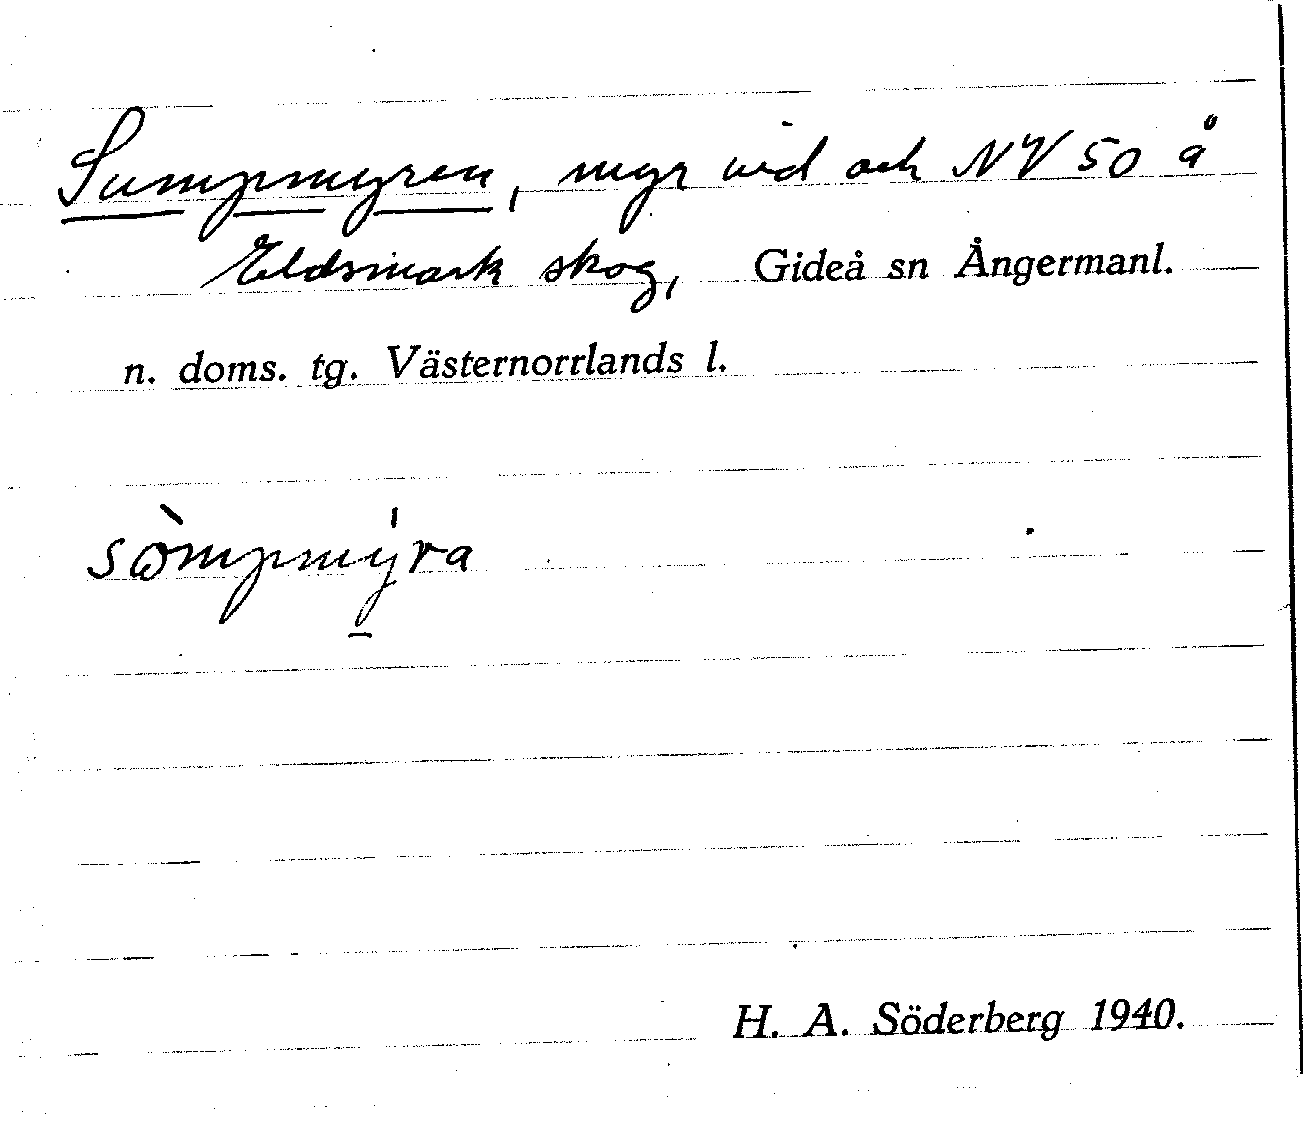 Sumpmyren, myr vid och NV 50 å
Eldsmark skog, Gideå sn Ångermanl.
n. doms. tg. Västernorrlands l.
sòmpmýra
H. A. Söderberg 1940.